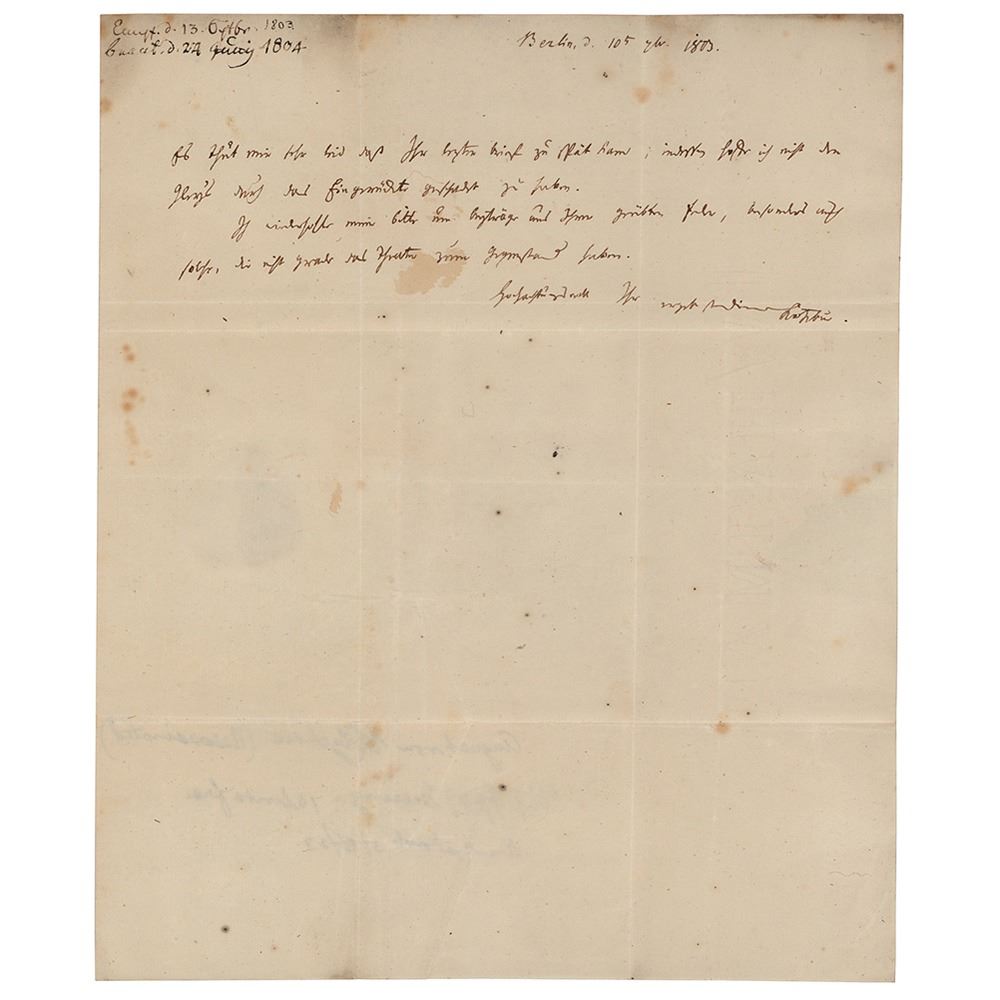 Empf. d. 13. Octbr. 1803
beant. d. 24 Juny 1804
Berlin, d. 10t 7br. 1803.
Es thut mir sehr leid daß Ihr lezter brief zu spät kam; indessen hoffe ich nicht den
durch das Eingerückte geschadet zu haben.
Ich wiederhohle meine bitte um beyträge aus Ihrer geübten Feder, besonders auch
solche, die nicht grade das Theater zum Gegenstand haben.
Hochachtungsvoll Ihr Kotzebue.